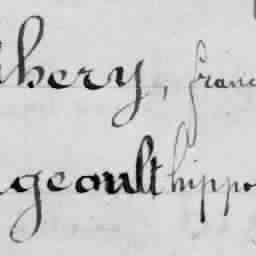 hery, franc
geault hippo